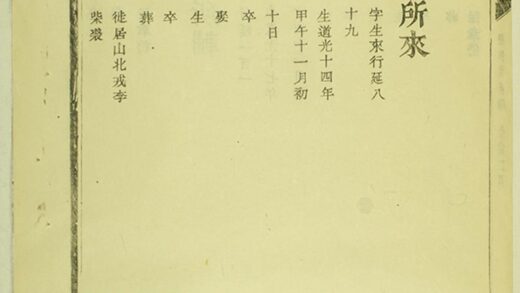 所來
字生來行延八
十九
生道光十四年
甲午十一月初
十日
卒
娶
生
卒
葬
徙居山北戎李
柴裳